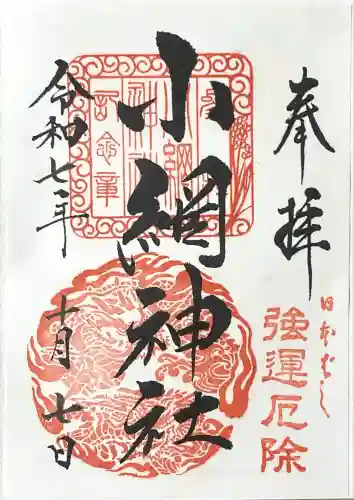 奉拝
日本ばし
強運厄除
小網神社
令和七年
十月七日